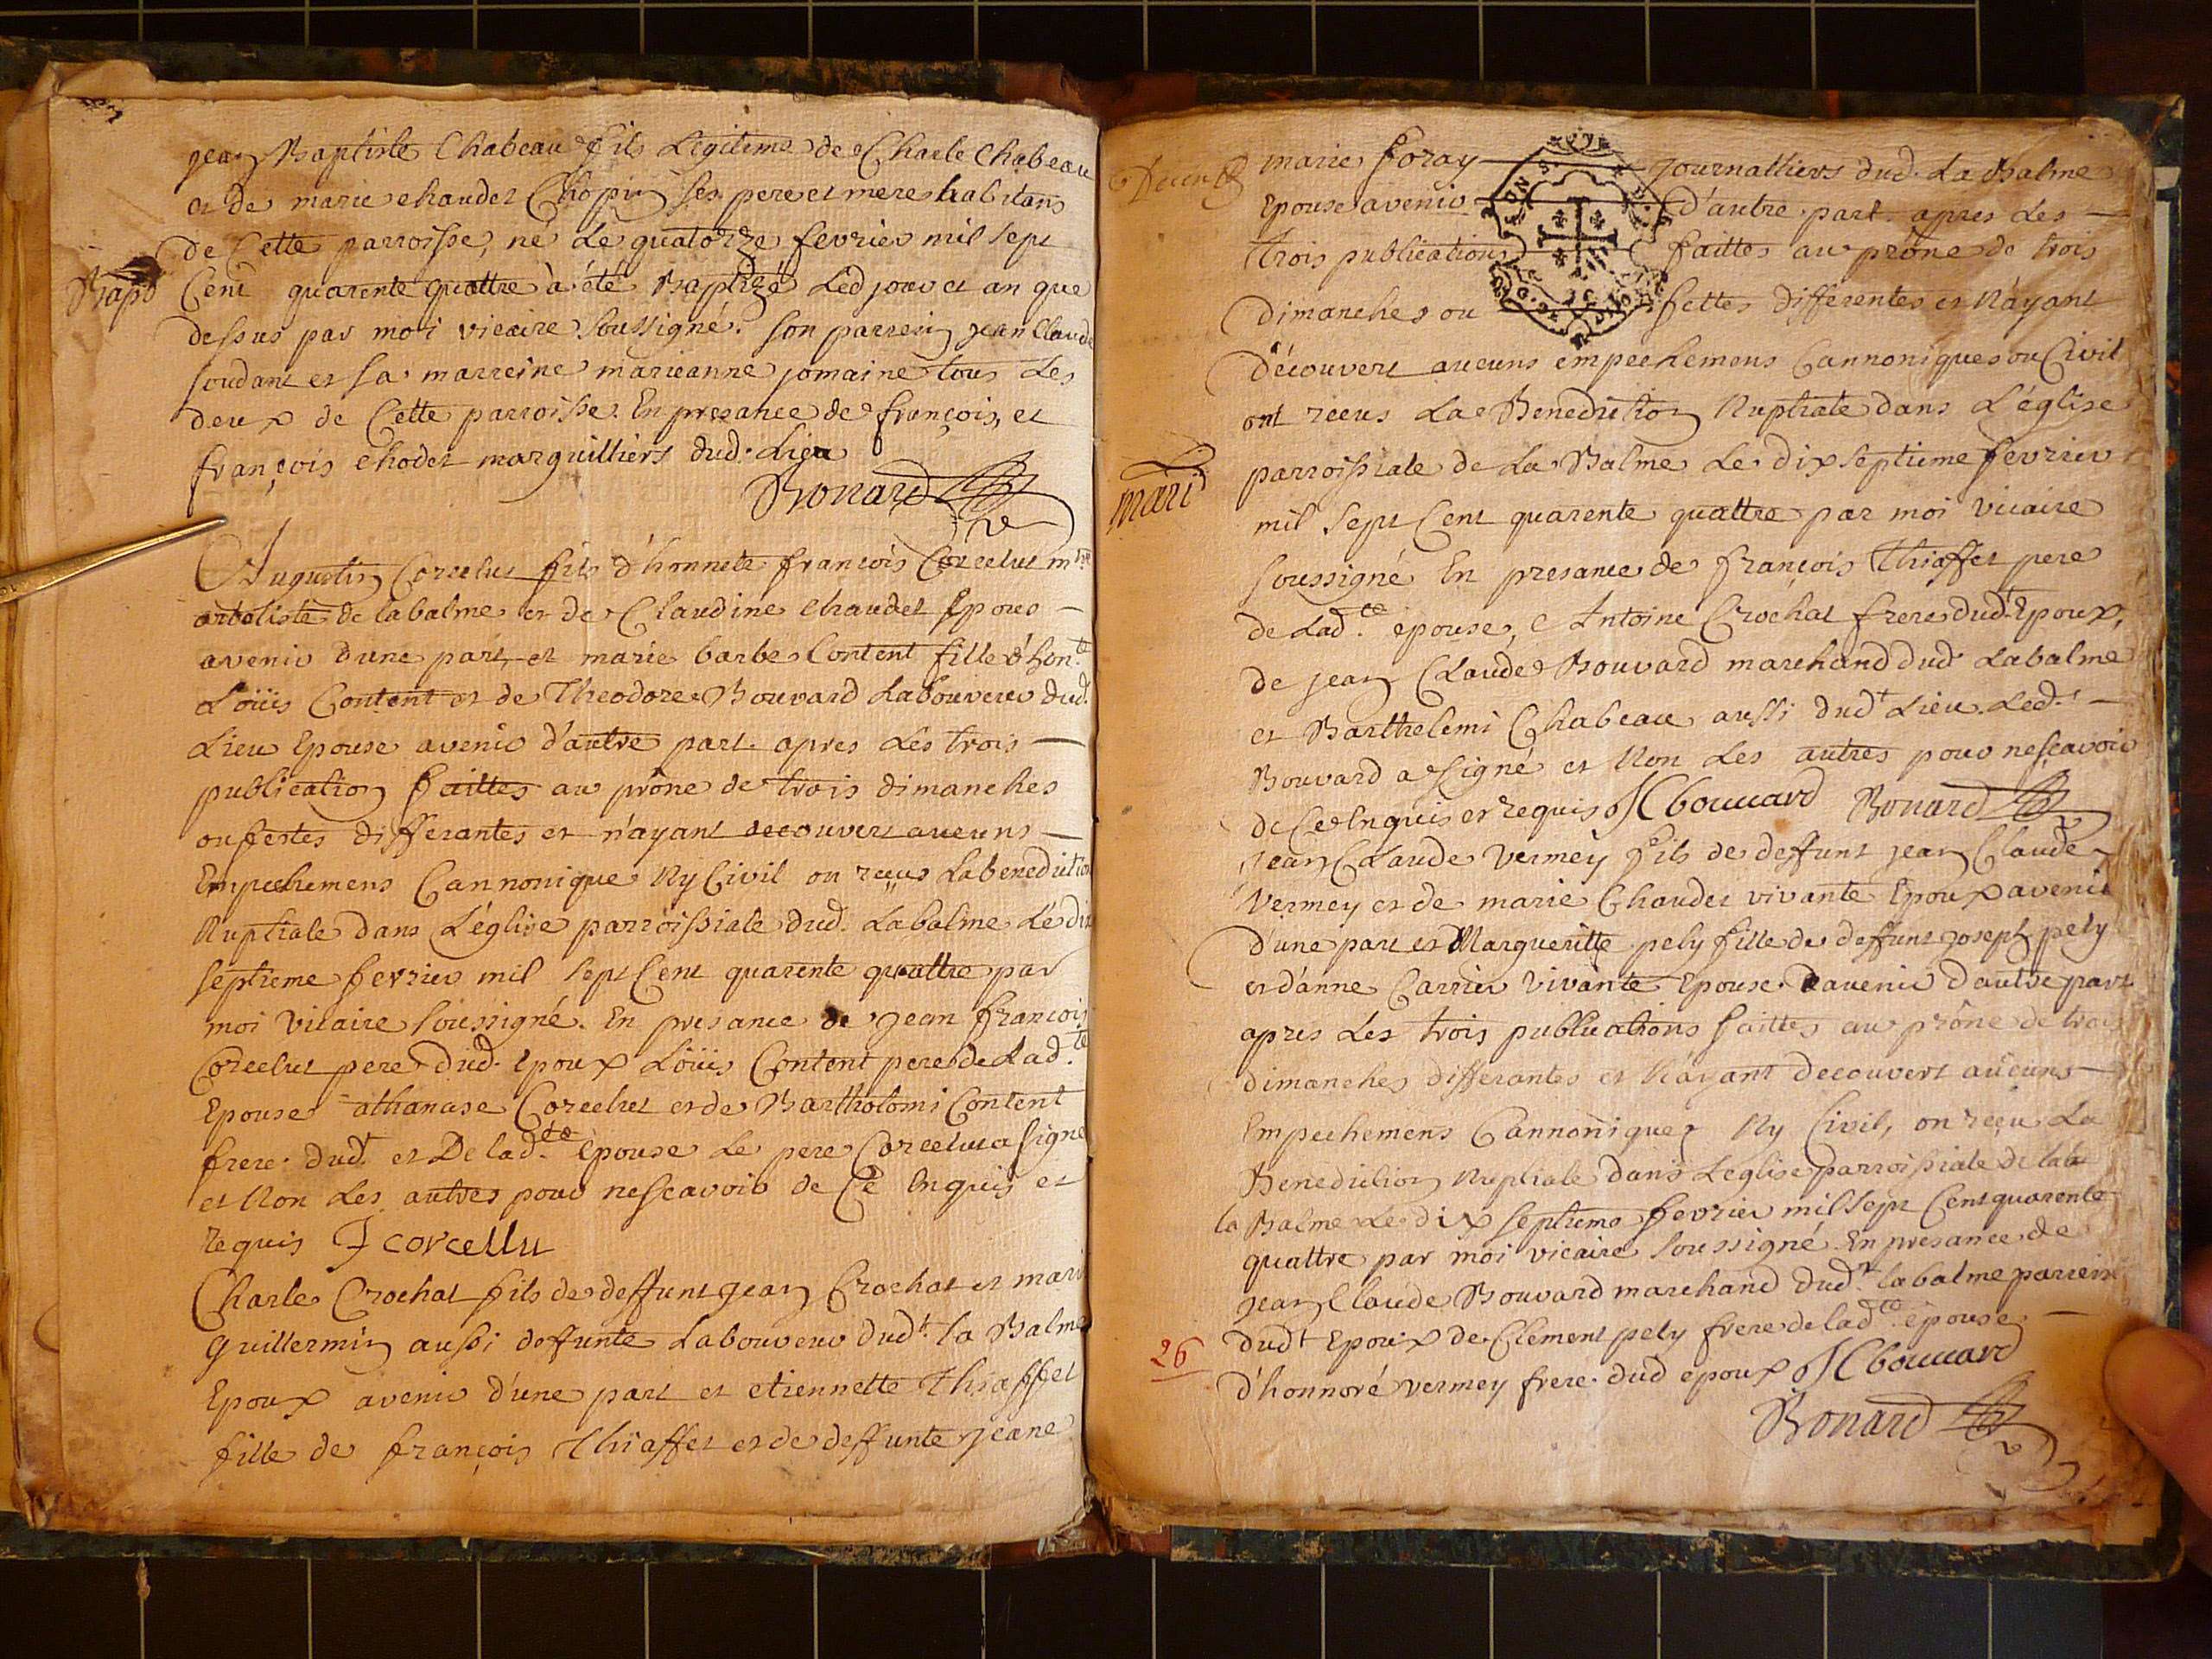 jean Baptiste Chabeau fils Legitime de Charle Chabeau
et de marie chaudet Chopin ses pere et mere habitans
de Cette parroisse, né Le quatorze fevrier mil sept
Bapt
Cent quarente quattre à été Baptizé Led jour et an que
dessus par moi vicaire soussigné. son parrein jean Claude
soudant et sa marreine marieanne jomaine tous Les
deux de Cette parroisse. En presance de françois, et
françois chodet marguilliers dud. Lieu
Bonard
Augustin Corcelut fils d'honnete francois Corcelut
de labalme et de Claudine chaudet Epous
avenir d'une part et marie barbe Content fille d'hon.te
Loüis Content et de Theodore Bouvard Laboureur dud.
Lieu Epouse avenir d'autre part. apres Les trois
publication faittes au prône de trois dimanches
ou festes differantes et n'ayant decouvert aucuns
Empechemens Cannonique Ny Civil on reçus Labenediction
Nuptiale dans L'église parroissiale dud. Labalme Le dix
septieme fevrier mil sept Cent quarente quattre par
moi vicaire soussigné. En presance de jean francois
Corcelut pere dud. Epoux Loüis Content pere de Lad.te
Epouse athanase Corcelut et de Bartholomi Content
frere dud.t et De lad.te épouse Le pere Corcelut a signé
et Non Les autres pour ne scavoir de Ce Enquis et
requis F corcellu
Charle Crochat fils de deffunt jean Crochat et mari
guillermin aussi deffunte Laboureur dud.t la Balme
Epoux avenir d'une part et etiennette Thiaffet
fille de françois Thiaffet et de deffunte jeane
marie foray journalliers dud. La Balme
Epouse avenir d'autre part. apres Les
trois publications faittes au prône de trois
dimanches ou fettes differentes et N'ayant
découvert aucuns empechemens Cannoniques ou Civil
ont recus La Benediction Nuptiale dans L'église
parroissiale de La Balme Le dix septieme fevrier
mari
mil sept Cent quarente quattre par moi vicaire
soussigné En presance de françois Thiaffet pere
de Lad.te épouse, Antoine Crochat frere dud.t Epoux,
de jean Claude Bouvard marchand dud. Labalme
et Barthelemi Chabeau aussi dud.t Lieu. Led.t
Bouvard a signé et Non Les autres pour ne scavoir
de Ce Enquis et requis JC bouuard Bonard
jean Claude Vermey fils de deffunt jean Claude
Vermey et de marie Chaudet vivante Epoux avenir
d'une part et Margueritte pely fille de deffunt joseph pely
et d'anne Carrier Vivante Epouse avenir d'autre part
apres Les trois publications faittes au prône de trois
dimanches differantes et N'ayant decouvert aucuns
Empechemens Cannonique Ny Civil, on reçu La
Benediction Nuptiale dans Leglise parroissiale de la
la Balme Le dix septieme fevrier mil sept Cent quarente
quattre par moi vicaire soussigné En presance de
jean Claude Bouvard marchand dud.t labalme parrein
dud.t Epoux de Clement pely frere de lad.te épouse
26
d'honnoré vermey frere dud époux JC bouuard
Bonard